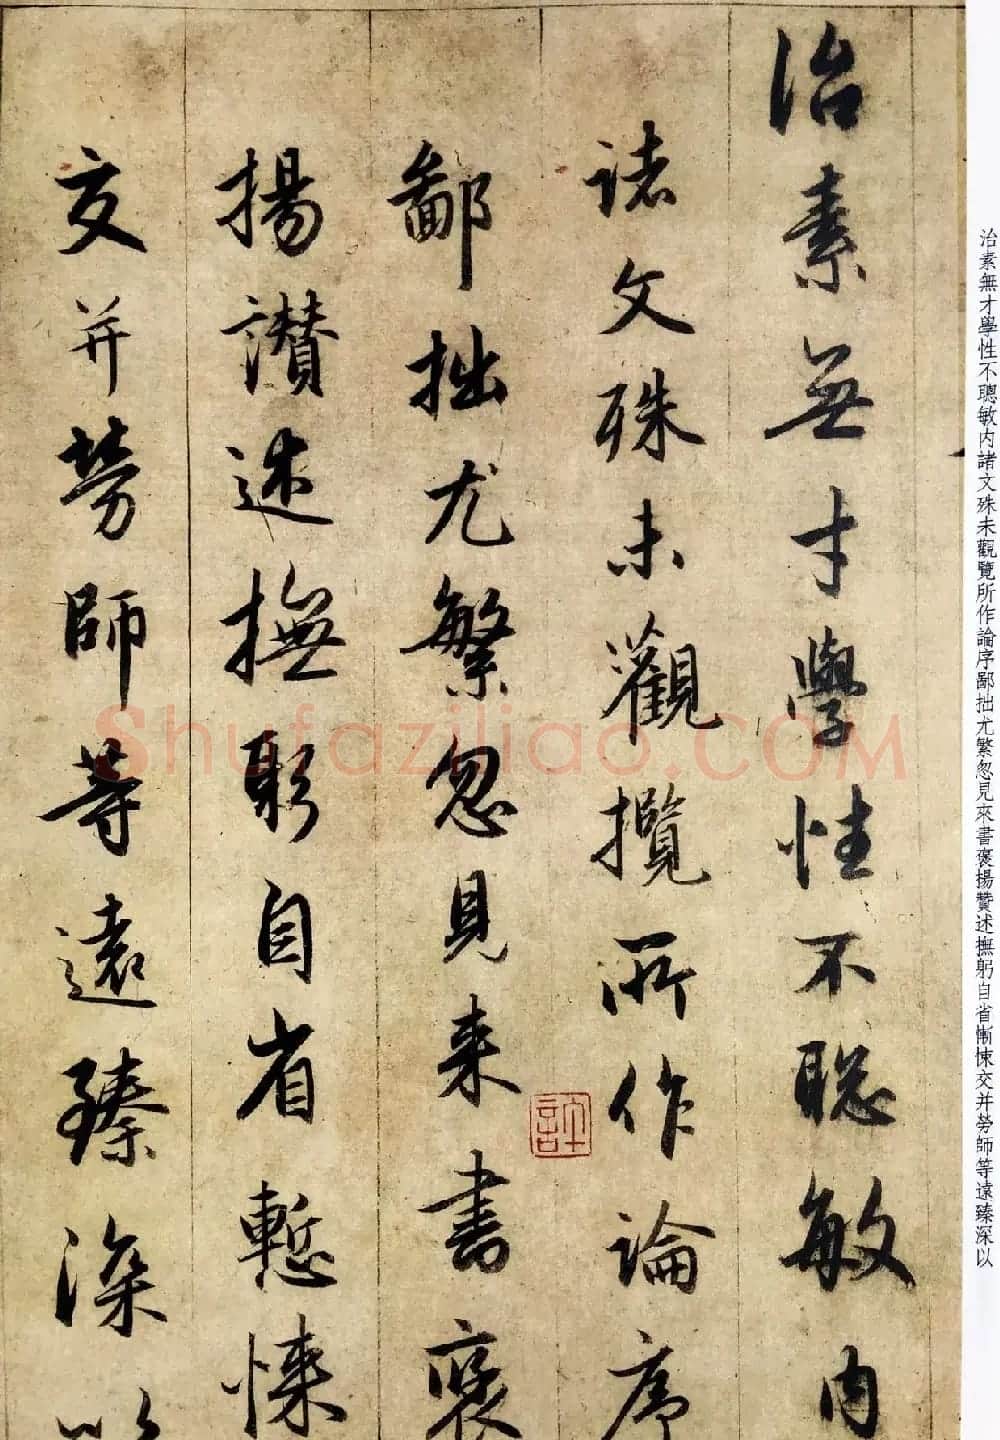 治素無才學性不聰敏内
諸文殊未觀攬所作論序
鄙拙尤繁忽見来書褒
揚讃述撫躬自省慙悚
交并勞師等遠臻深以
許
治素無才學性不聰敏内諸文殊未觀覽所作論序鄙拙尤繁忽見來書褒揚贊述撫躬自省慚悚交并勞師等遠臻深以
Shufaziliao.COM